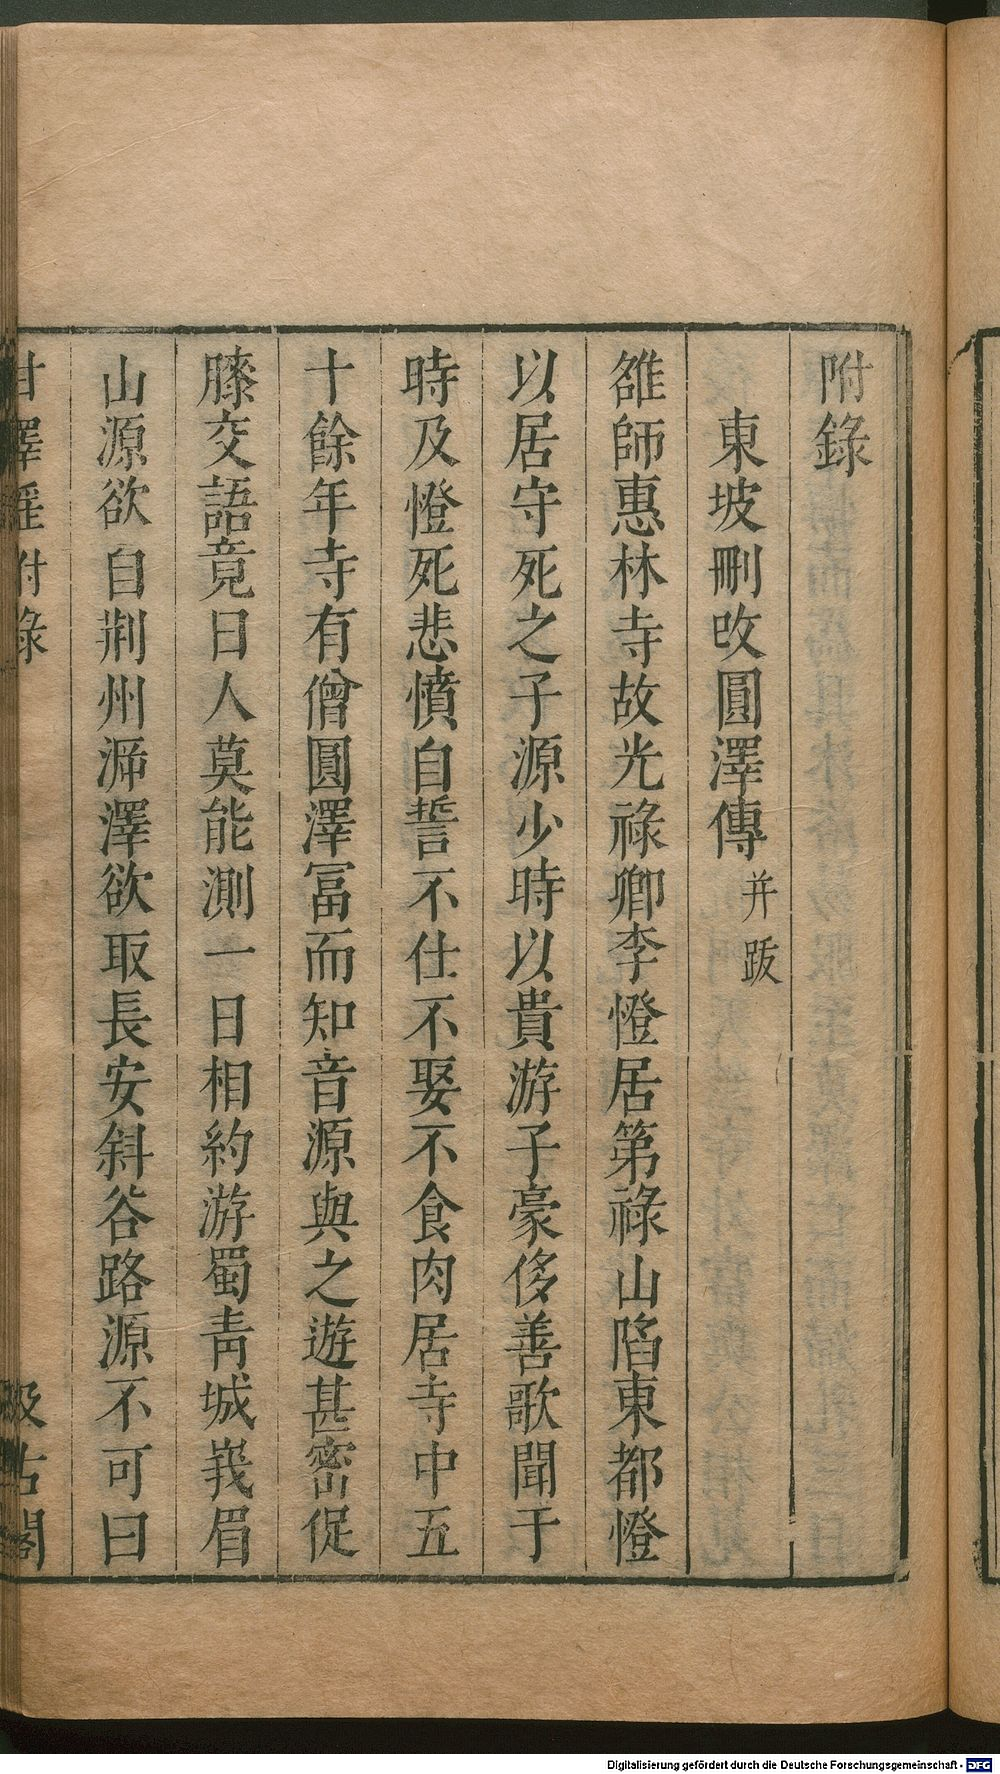 附錄
東坡刪改圓澤傳 并跋
雒師惠林寺故光祿卿李憕居第祿山陷東都憕
以居守死之子源少時以貴游子豪侈善歌聞于
時及憕死悲憤自誓不仕不娶不食肉居寺中五
十餘年寺有僧圓澤冨而知音源與之遊甚密促
膝交語竟日人莫能測一日相約游蜀青城峩眉
山源欲自荆州泝澤欲取長安斜谷路源不可曰
甘澤謠附錄 汲古閣
Digitalisierung gefördert durch die Deutsche Forschungsgemeinschaft - DFG